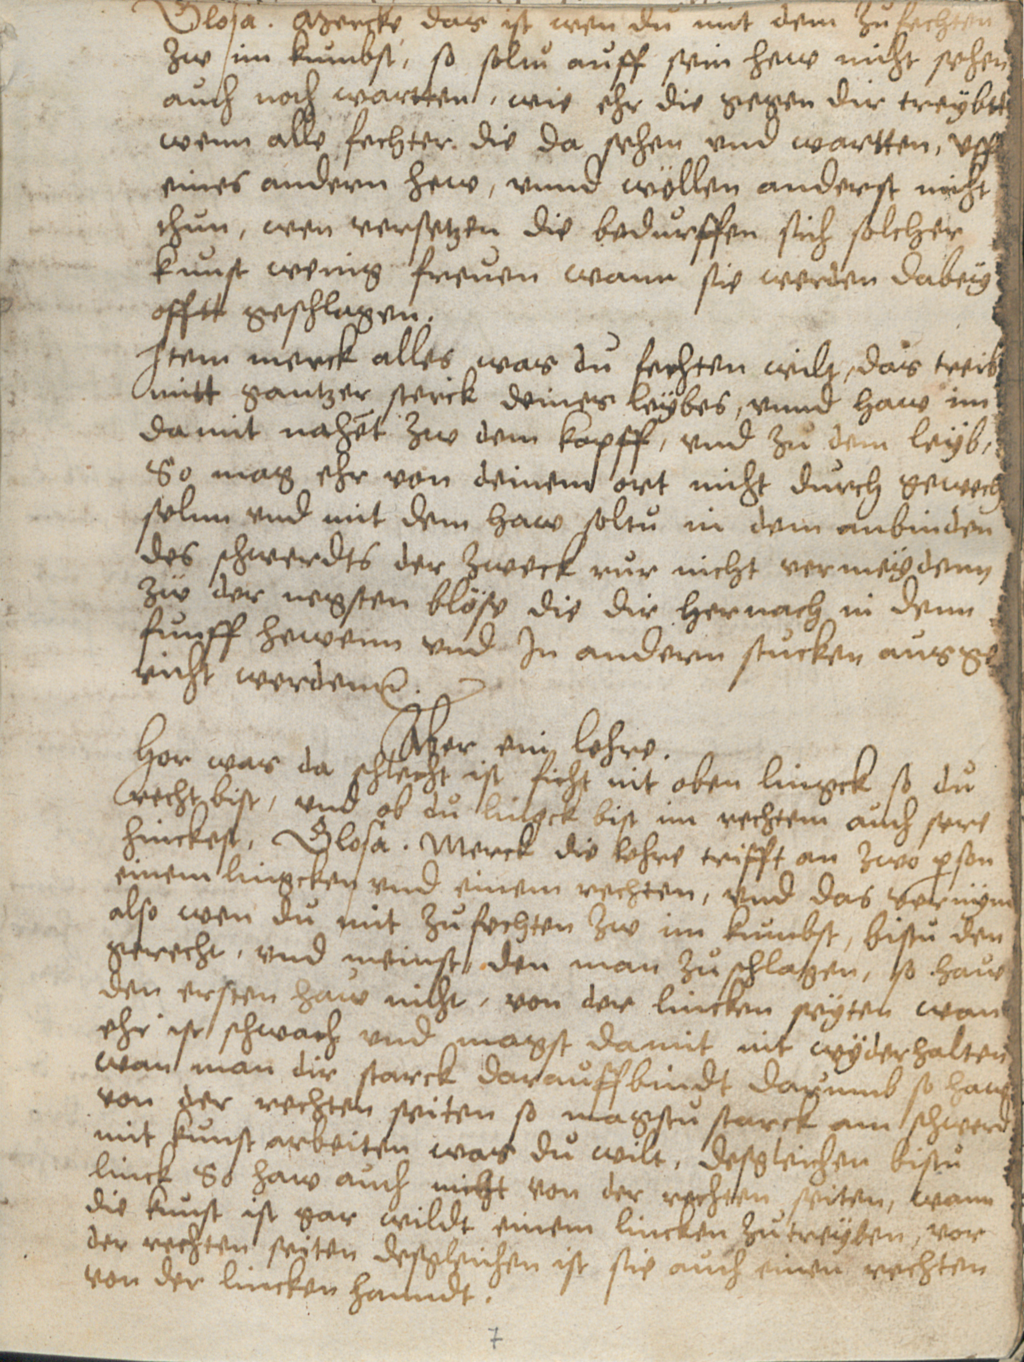 Glosa. Mercke das ist wen du mit dem zufechten
zw im kumbst, so soltu auff sein hew nicht sehen
auch noch wartten, wie ehr die gegen dir treÿbtt
wenn alle fechter die da sehen vnd wartten, vff
eines andern hew, vnnd wÿllen anderst nicht
thun, wen versetzen die bedurffen sich solcher
kunst wenig freuen wann sie werden dabeÿ
offtt geschlagen.
Item merck alles was du fechten wilt, das treib
mitt gantzer sterck deines leÿbes, vnnd haw im
damit nahet zw dem kopff, vnd zu dem leÿb,
So mag ehr von deinem ort nicht durch gewech
seln vnd mit dem haw soltu in dem anbinden
des schwerdts der zweck rur nicht vermeÿdenn
zw der negsten blösse die dir hernach in denn
funff hewenn vnd In andern stucken ausge
richt werdenn.
Aber ein lehre.
Hor was da schlecht ist ficht nit oben lingck so du
recht bist, vnd ob du lingck bist im rechtem auch sere
hinckest, Glosa. Merck die lehre trifft an zwo person
einem lingcken vnd einem rechten, vnd das vernÿm
also wen du mit zufechten zw im kumbst, bistu den
gerecht, vnd meinst, den man zu schlagen, so haw
den ersten haw nicht, von der lincken seÿten wan
ehr ist schwach vnd magst damit nit wÿderhalten
wan man dir starck darauffbindt darumb so haw
von der rechten seiten so magstu starck am schwerd
mit kunst arbeiten was du wilt, desgleichen bistu
linck So haw auch nicht von der rechten seiten, wann
die kunst ist gar wildt einem lincken zu treÿben, vor
der rechten seiten desgleichen ist sie auch einen rechten
von der lincken hanndt.
7